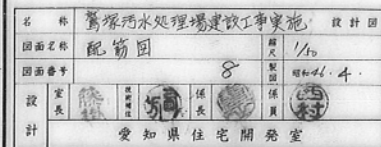 名称 鷲塚汚水処理場建設工事実施設計図
図面名称 配筋図 縮尺 1/50
図面番号 8 製図 昭和46.4.
設計 室長 技術補佐 係長 係員 西村
愛知県住宅開発室